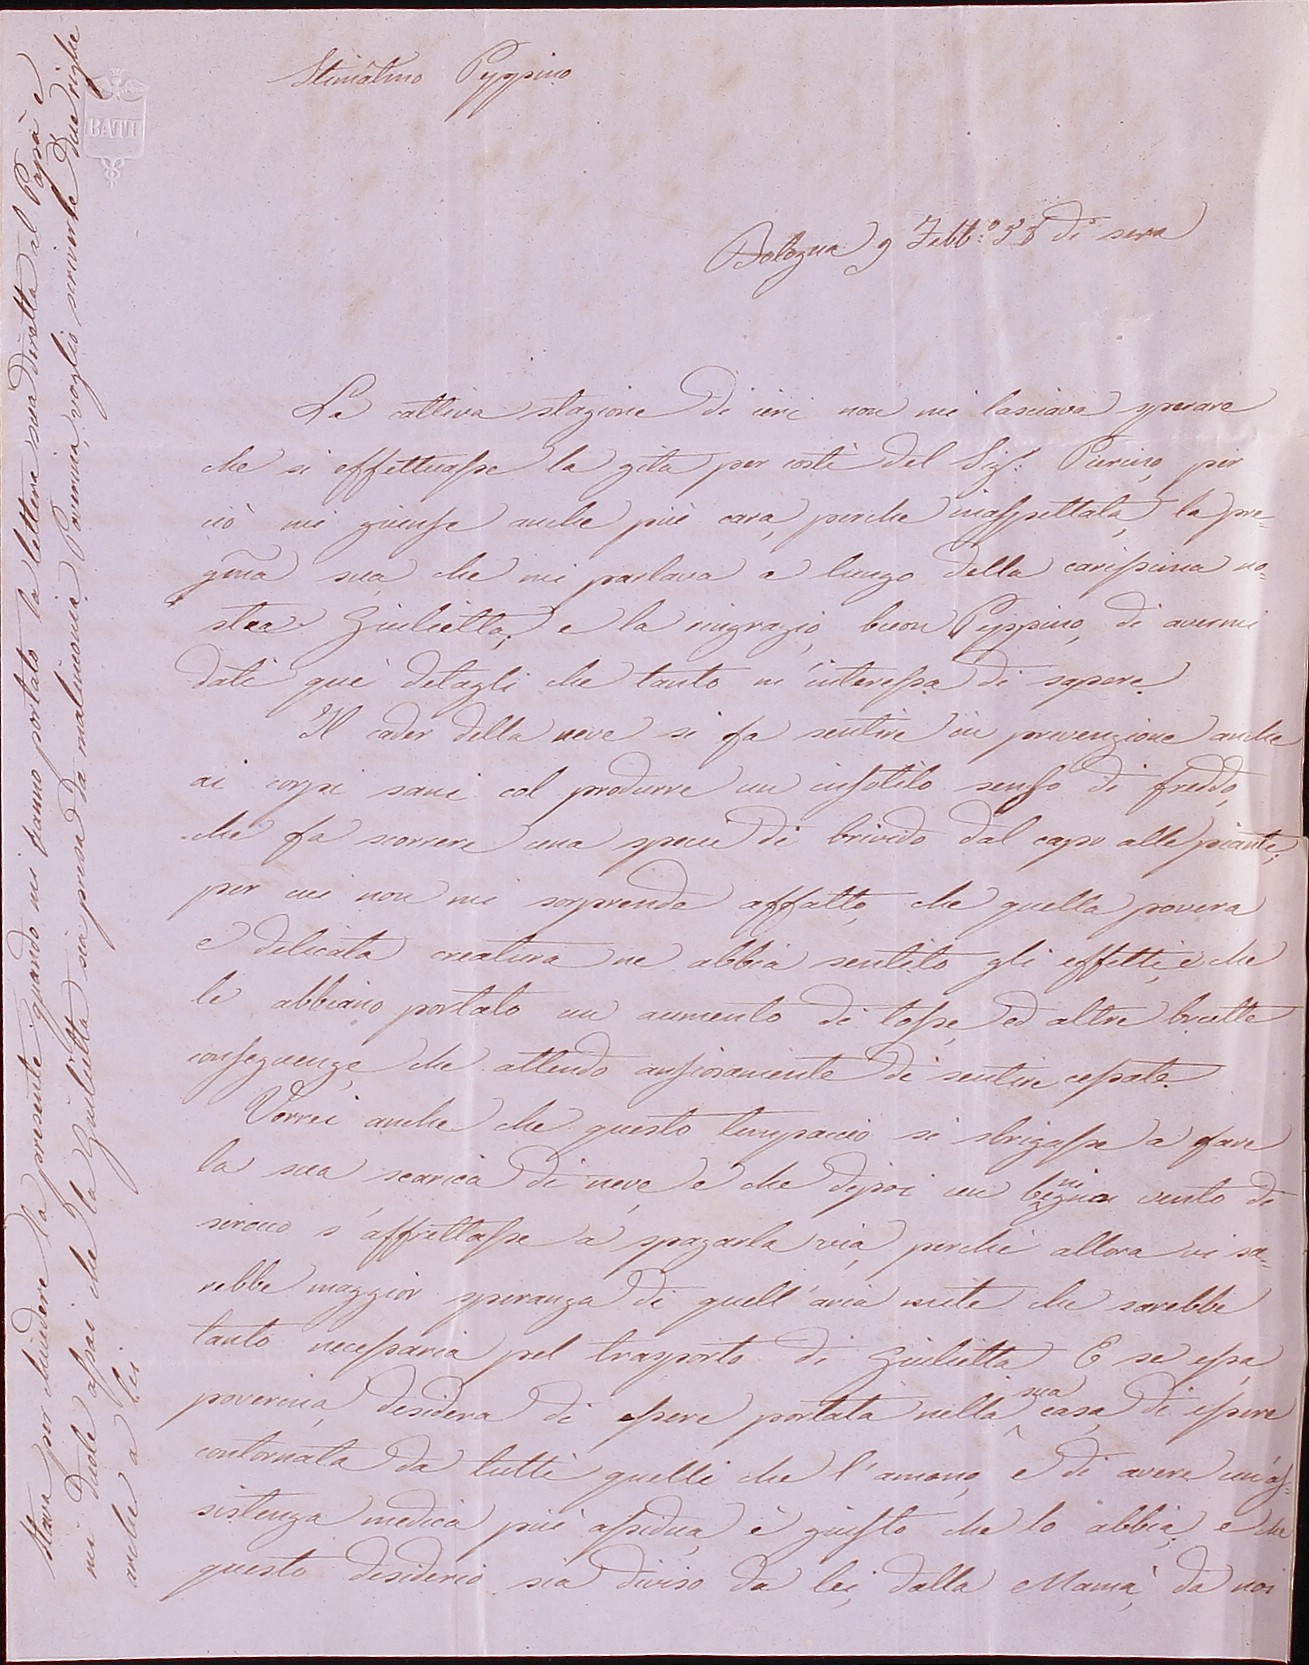 Stimatmo Peppino
BATI
Bologna 9 Febb:o 58 di sera
La cattiva stagione di ieri non mi lasciava sperare
che si effettuasse la gita per costì del Sigr. Pierino, per
ciò mi giunse anche più cara, perche inaspettata, la pre-
gma sua che mi parlava a lungo della carissima no-
stra Giulietta; e la ringrazio, buon Peppino, di avermi
dati quei detagli che tanto m'interessa di sapere.
Il cader della neve si fa sentire in prevenzione anche
ai corpi sani col produrre un insolito senso di freddo,
che fa scorrere una specie di brivido dal capo alle piante;
per cui non mi sorprende affatto, che quella povera
e delicata creatura ne abbia sentito gli effetti, e che
le abbiano portato un aumento di tosse, ed altre brutte
conseguenze, che attendo ansiosamente di sentire cessate.
Vorrei anche che questo tempaccio si sbrigasse a fare
la sua scarica di neve, e che dipoi un benigno vento di
siroco s'affrettasse a spazarla via, perchè allora vi sa-
rebbe maggior speranza di quell'aria mite che sarebbe
tanto necessaria pel trasporto di Giulietta. E se essa,
poverina, desidera di essere portata nella sua casa, di essere
contornata da tutti quelli che l'amano, e di avere un'as-
sistenza medica più assidua, è giusto che lo abbia; e che
questo desiderio sia diviso da lei, dalla Mamà, da noi
Stava per chiudere la presente quando mi hanno portato la lettera sua diretta al Papà e
mi duole assai che la Giulietta sia presa da malinconia. Poverina, voglio scriverle due righe
anche a Lei